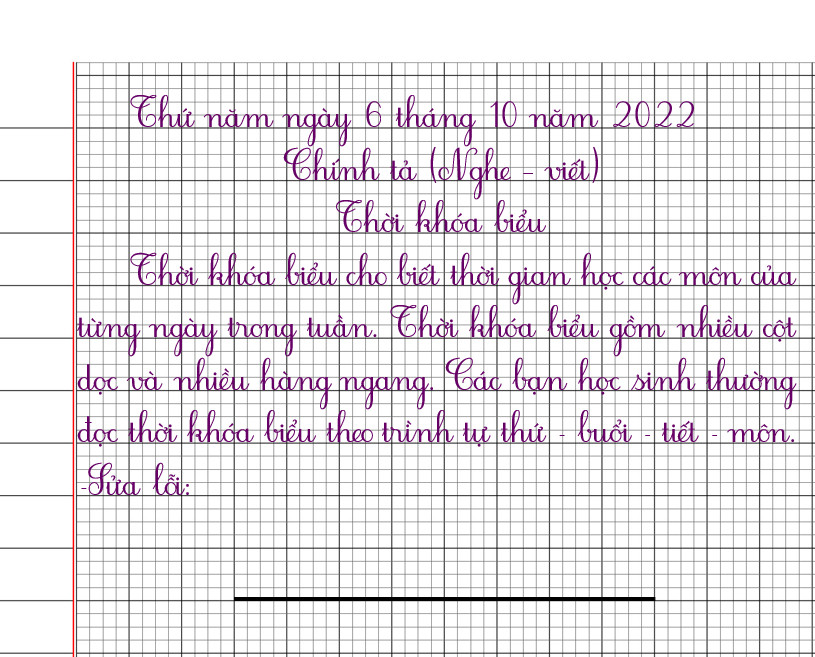 Thứ năm ngày 6 tháng 10 năm 2022
Chính tả (Nghe - viết)
Thời khóa biểu
Thời khóa biểu cho biết thời gian học các môn của
từng ngày trong tuần. Thời khóa biểu gồm nhiều cột
dọc và nhiều hàng ngang. Các bạn học sinh thường
đọc thời khóa biểu theo trình tự thứ - buổi - tiết - môn.
-Sửa lỗi: